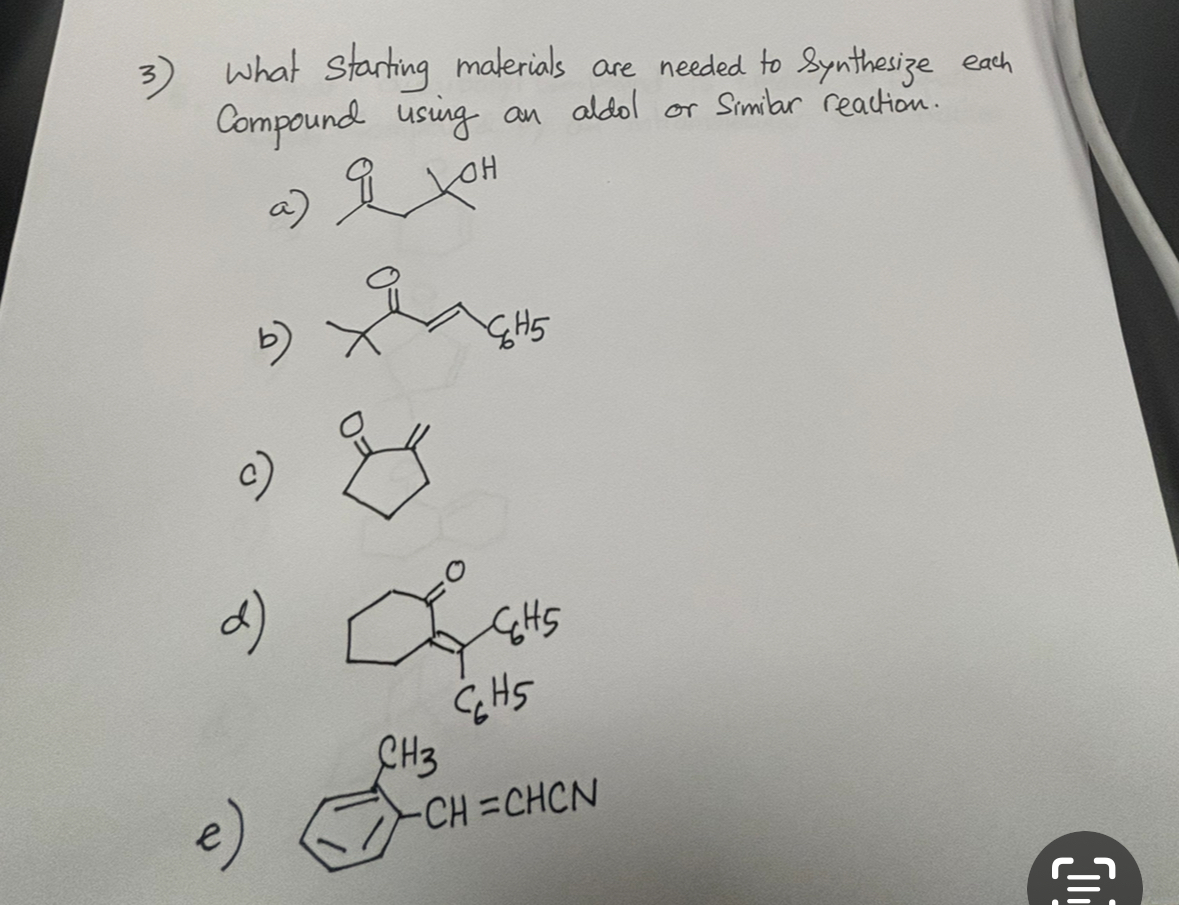 3) What Starting materials are needed to Synthesize each
Compound using an aldol or Similar reaction.
a) O OH
b) O C6H5
c) O
d) O C6H5
C6H5
CH3
e) -CH=CHCN